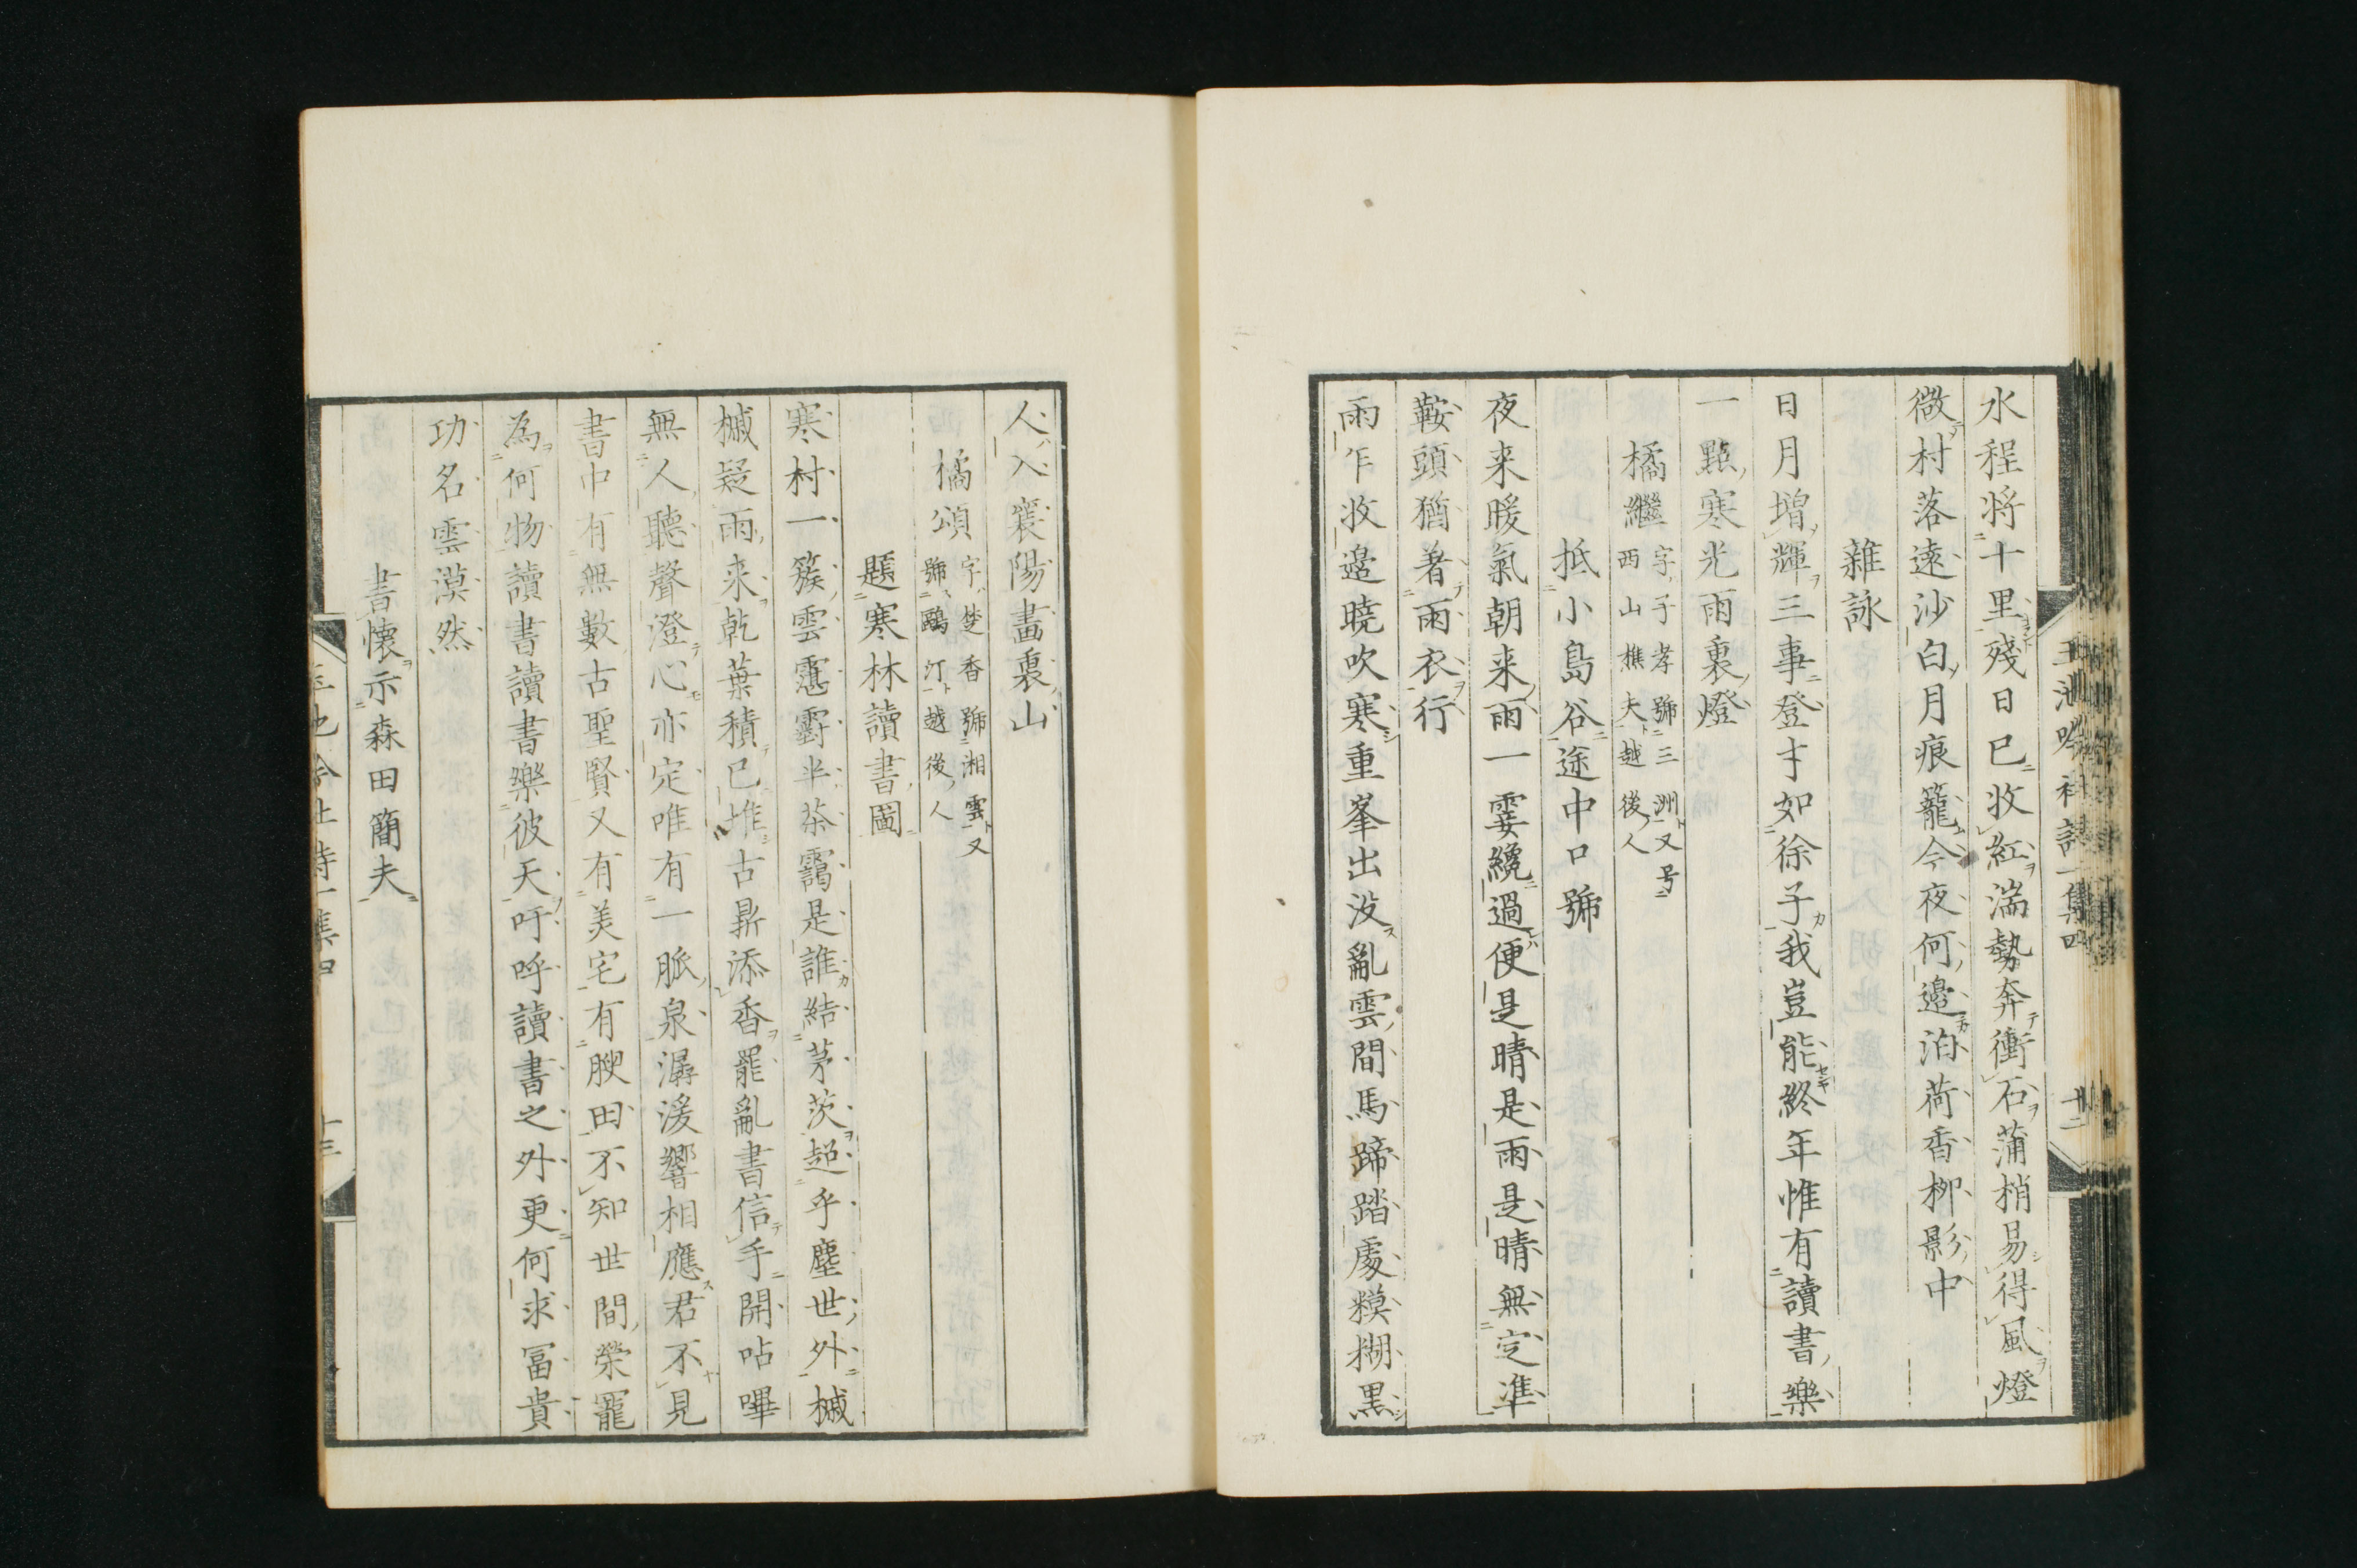 水程将十里殘日已收紅湍勢奔衝石蒲梢易得風燈
微村落遠沙白月痕籠今夜何邊泊荷香柳影中
雜詠
日月増輝三事登才如徐子我豈能終年惟有讀書樂
一點寒光雨裏燈
橘繼 字子孝號三洲又号
西山樵夫越後人
抵小島谷途中口號
夜来暖氣朝来雨一霎纔過便是晴是雨是晴無定準
鞍頭猶著雨衣行
雨乍收邉曉吹寒重峯出没亂雲間馬蹄踏處糢糊黒
人入襄陽畫裏山
橘頌 字楚香號湘雲又
號鷗汀越後人
題寒林讀書圖
寒村一簇雲靉霨半茶靄是誰結茅茨超乎塵世外槭
槭疑雨来乾葉積已堆古鼎添香罷亂書信手開呫嗶
無人聽聲澄心亦定唯有一脈泉潺湲響相應君不見
書中有無數古聖賢又有美宅有腴田不知世間榮寵
為何物讀書讀書樂彼天吁呼讀書之外更何求冨貴
功名雲漠然
書懐示森田簡夫